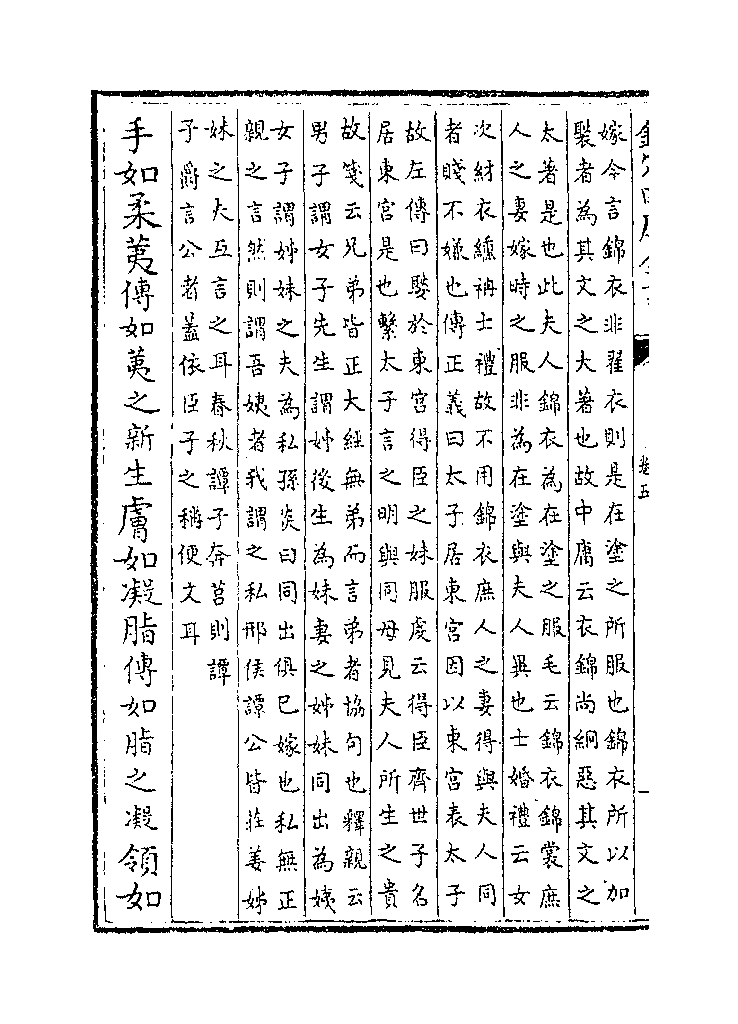 卷五
嫁今言錦衣非翟衣則是在塗之所服也錦衣所以加
褧者為其文之大著也故中庸云衣錦尚絅惡其文之
太著是也此夫人錦衣為在塗之服毛云錦衣錦裳庶
人之妻嫁時之服非為在塗與夫人異也士婚禮云女
次紂衣纁袡士禮故不用錦衣庶人之妻得與夫人同
者賤不嫌也傳正義曰太子居東宮因以東宮表太子
故左傳曰娶於東宮得臣之妹服虔云得臣齊世子名
居東宮是也繫太子言之明與同母見夫人所生之貴
故箋云兄弟皆正大經無弟而言弟者協句也釋親云
男子謂女子先生謂姊後生為妹妻之姊妹同出為姨
女子謂姊妹之夫為私孫炎曰同出俱已嫁也私無正
親之言然則謂吾姨者我謂之私邢侯譚公皆莊姜姊
妹之夫互言之耳春秋譚子奔莒則譚
子爵言公者蓋依臣子之稱便文耳
手如柔荑傳如荑之新生膚如凝脂傳如脂之凝領如